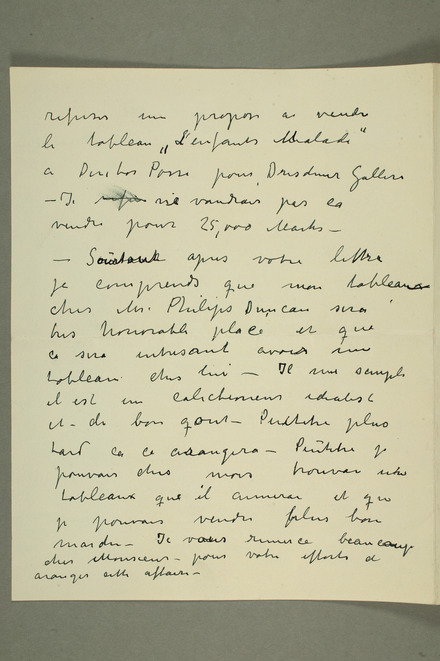 refuser une propos a vendre
le tableau „L'enfants Malade"
a Direktor Posse pour Dresdner Gallerie
— Je ne voudrais pas ca
vendre pour 25,000 Marks —
— Surtout apres votre lettre
je comprends que mon tableaux
ches Mr. Philips Duncan sera
tres honorable place et que
ca sera intresant avoir un
tableau ches lui — Il me semple
il est un calectioneur idealist
et de bon gout — Peutetre plus
tard ca ce arangera — Peutetre je
pouvais ches mois trouver une
tableaux que il aimerai et que
je pouvais vendre plus bon
marche — Je vous remerce beaucoup
cher Monsieur — pour votre efforts de
aranger cette affaire —